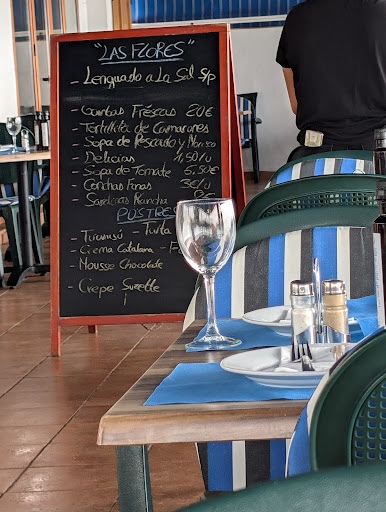 "LAS FLORES"
- Lenguado a La Sal S/p
- Gambas Fréscas 20€
- Tortillita de Camarones
- Sopa de Pescado y Marisco
- Delicias 1,50/u
- Sopa de Tomate 5,50€
- Conchas Finas 3€/u
- Sardinas Plancha
POSTRES
- Tiramisú - Turta
- Crema Catalana - F
- Mousse Chocolate
- Crepe Suzette